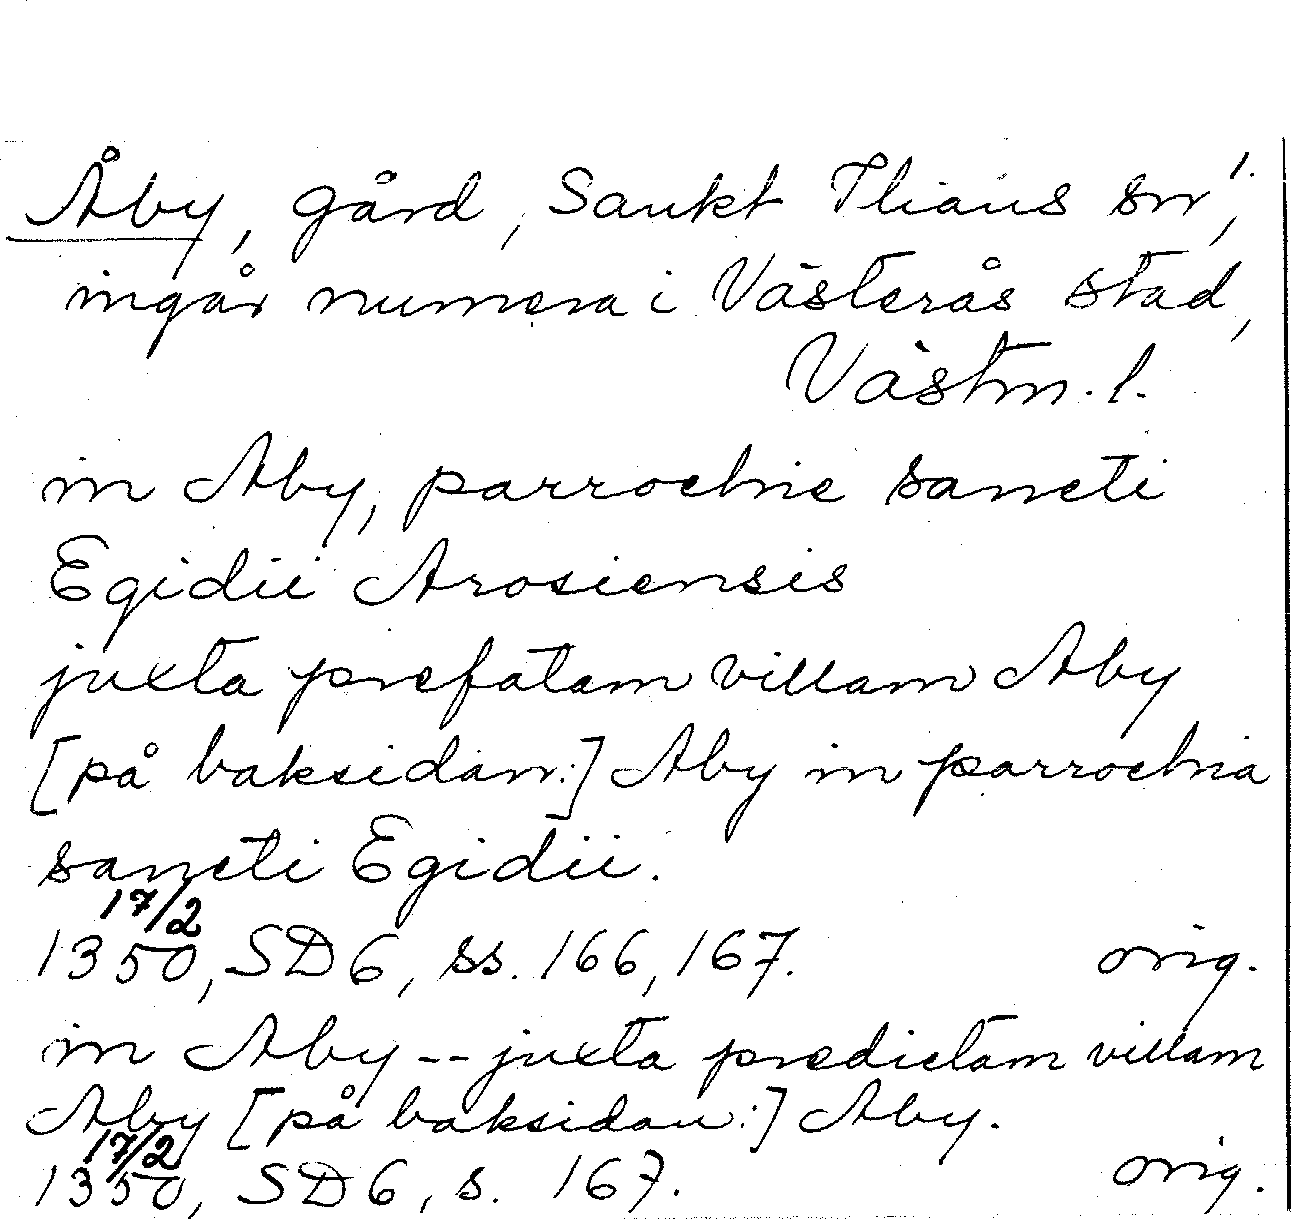 Åby, gård, Sankt Ilians sn!,
ingår numera i Västerås stad,
Västm. l.
in Aby, parrochie sancti
Egidii Arosiensis
juxta prefatam villam Aby
[på baksidan:] Aby in parrochia
sancti Egidii.
17/2
1350, SD 6, ss. 166, 167. orig.
in Aby -- juxta predictam villam
Aby [på baksidan:] Aby.
17/2
1350, SD 6, s. 167. orig.